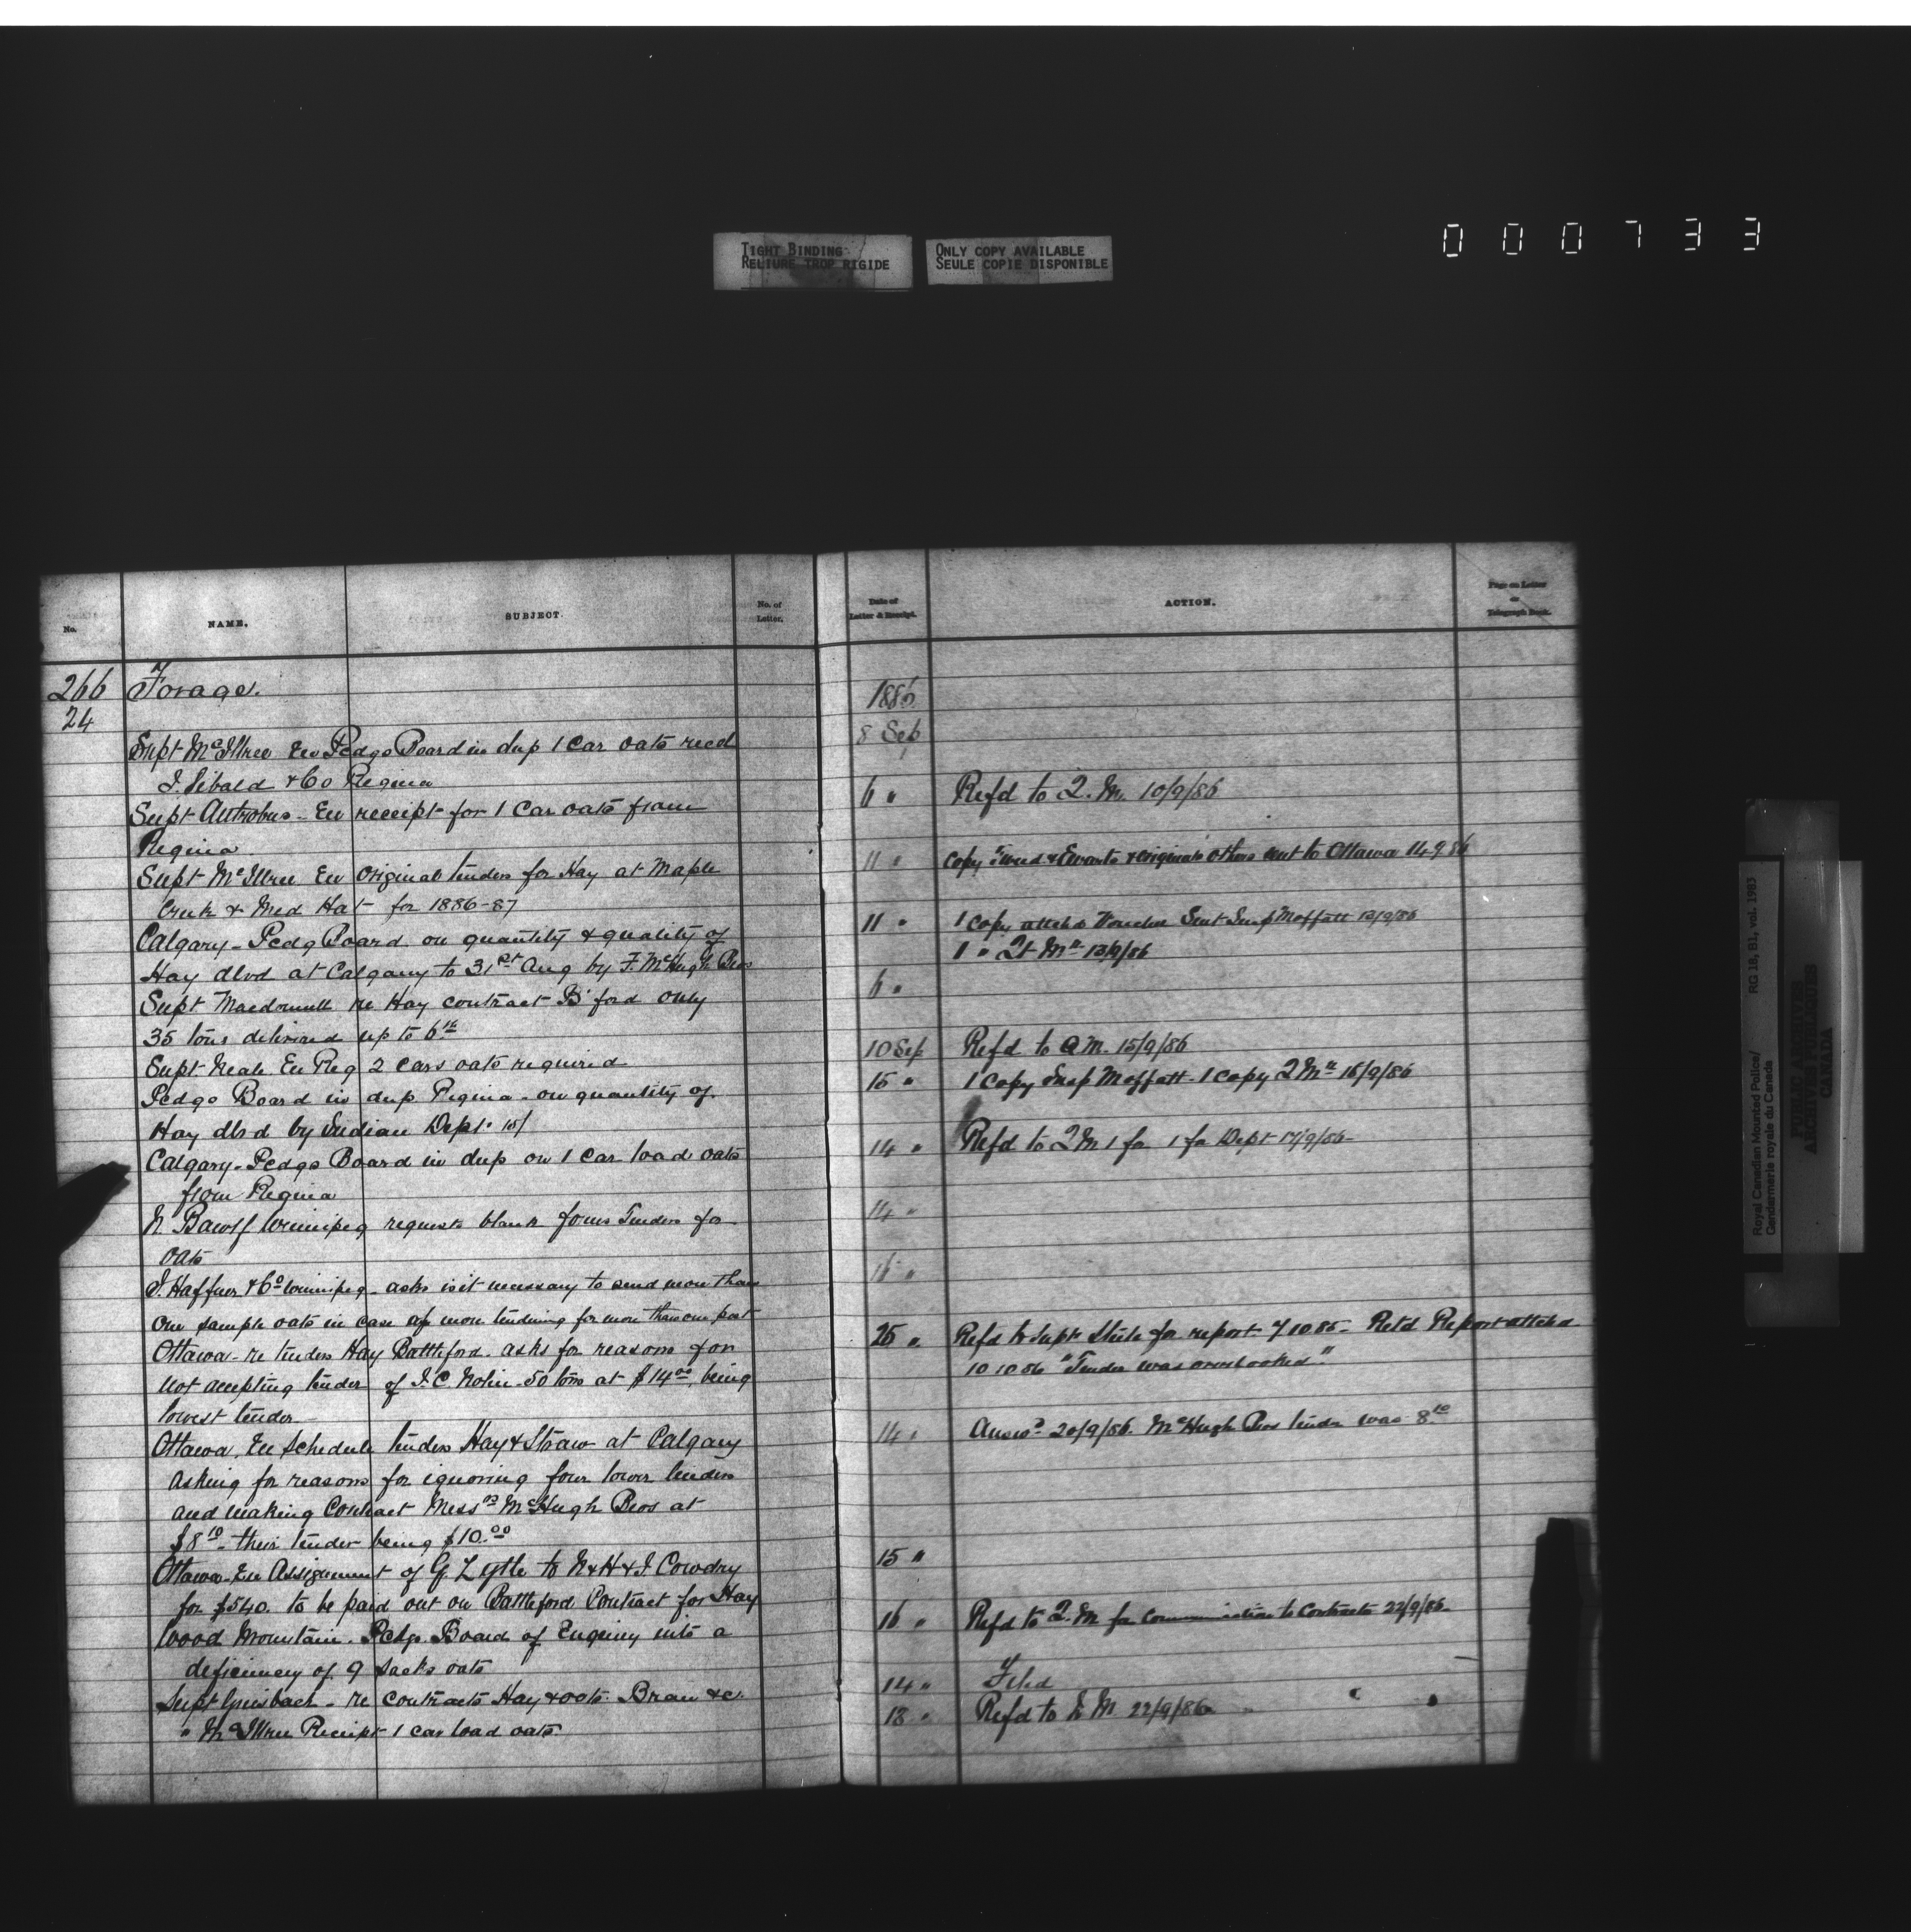 TIGHT BINDING
RELIURE TROP RIGIDE
ONLY COPY AVAILABLE
SEULE COPIE DISPONIBLE
000733
No.
NAME.
SUBJECT.
No. of
Letter.
266
24
Forage.
Supt McIllree En Pcdgs Board in dup 1 Car oats recd
J. Sibald & Co Regina
Supt Antrobus - En receipt for 1 Car oats from
Regina
Supt McIllree En Original tenders for Hay at Maple
Creek & Med Hat - for 1886-87
Calgary - Pcdg Board on quantity & quality of
Hay dlvd at Calgary to 31st Aug by F. McHugh Bros
Supt Macdonnell re Hay contract B'ford only
35 tons delivered up to 6th
Supt. Neale En Req 2 cars oats required
Pcdgs Board in dup Regina - on quantity of
Hay dlvd by Indian Dept.
Calgary - Pcdgs Board in dup on 1 Car load oats
from Regina
N. Bawlf Winnipeg requests blank forms Tenders for
Oats
J. Haffner & Co Winnipeg - asks is it necessary to send more than
one sample oats in case of tendering for more than one post
Ottawa - re tenders Hay Battleford. asks for reasons for
not accepting tender of J. C. Nolin - 50 tons at $14 00, being
lowest tender
Ottawa, En Schedule tenders Hay & Straw at Calgary
asking for reasons for ignoring four lower tenders
and making Contract Messrs McHugh Bros at
$8 10 - their tender being $10.00
Ottawa - En Assignment of G. Lytle to N & H & J Cowdry
for $540. to be paid out on Battleford Contract for Hay
Wood Mountain. Pcdgs. Board of Enquiry into a
deficiency of 9 Sacks oats
Supt Griesbach - re Contracts Hay & oats. Bran &c.
" McIllree Receipt 1 car load oats.
Date of
Letter & Receipt.
ACTION.
Page on Letter
or
Telegraph Book.
1886
8 Sep
6 " Refd to Q. M. 10/9/86
11 " Copy Tweed & Ewarts & originals others sent to Ottawa 14 9 86
11 " 1 Copy attchd Voucher Sent Insp Moffatt 13/9/86
1 " Qt Mr 13/9/86
6 "
10 Sep Refd to Q M. 15/9/86
15 " 1 Copy Insp Moffatt - 1 Copy Q Mr 16/9/86
14 " Refd to Q M 1 for 1 for Dept 17/9/86
14 "
16 "
25 " Refd to Supt Steele for report 7 10 86 - Retd Report attchd
10 10 86 "Tender was overlooked."
14 " Answd 20/9/86. McHugh Bros tender was 8.10
15 "
16 " Refd to Q. M for Communication to Contracts 22/9/86
14 " Filed
18 " Refd to Q M 22/9/86
Royal Canadian Mounted Police/
Gendarmerie royale du Canada
RG 18, B1, vol. 1983
PUBLIC ARCHIVES
ARCHIVES PUBLIQUES
CANADA